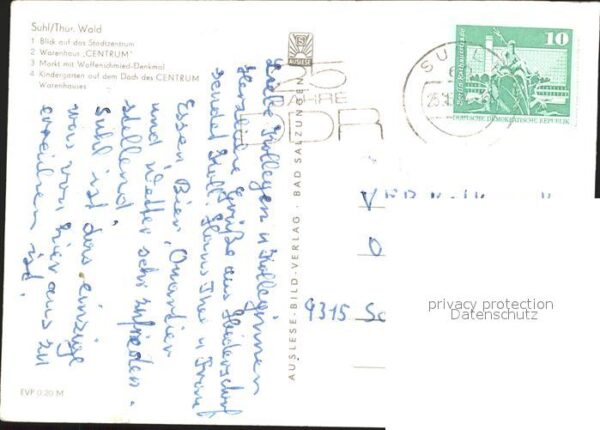 Suhl/Thür. Wald
1 Blick auf das Stadtzentrum
2 Warenhaus „CENTRUM"
3 Markt mit Waffenschmied-Denkmal
4 Kindergarten auf dem Dach des CENTRUM
Warenhauses
Liebe Kollegen u. Kolleginnen
Herzliche Grüße aus
sendet Koll. Hans u. Frau
Essen, Bier, Quartier
und Wetter sehr zufrieden-
stellend.
Suhl ist das einzige
was von hier aus zu
erreichen ist.
EVP 0,20 M
AUSLESE
AUSLESE-BILD-VERLAG · BAD SALZUNGEN
25
JAHRE
DDR
SUHL
10
DEUTSCHE DEMOKRATISCHE REPUBLIK
VEB
9315
privacy protection
Datenschutz